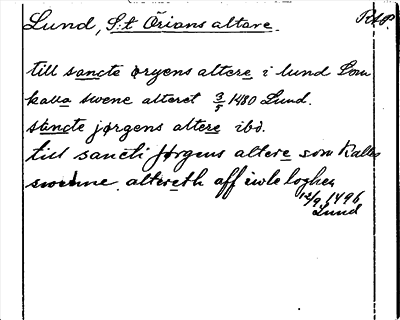 Lund, S:t Örians altare.
till sancte øryens altere i lund Som
kalla swene alteret 3/5 1480 Lund.
sancte jørgens altere ibd.
till sancti Jørgens altere som Kalles
altereth aff iwle loghen
12/9 1496
Lund